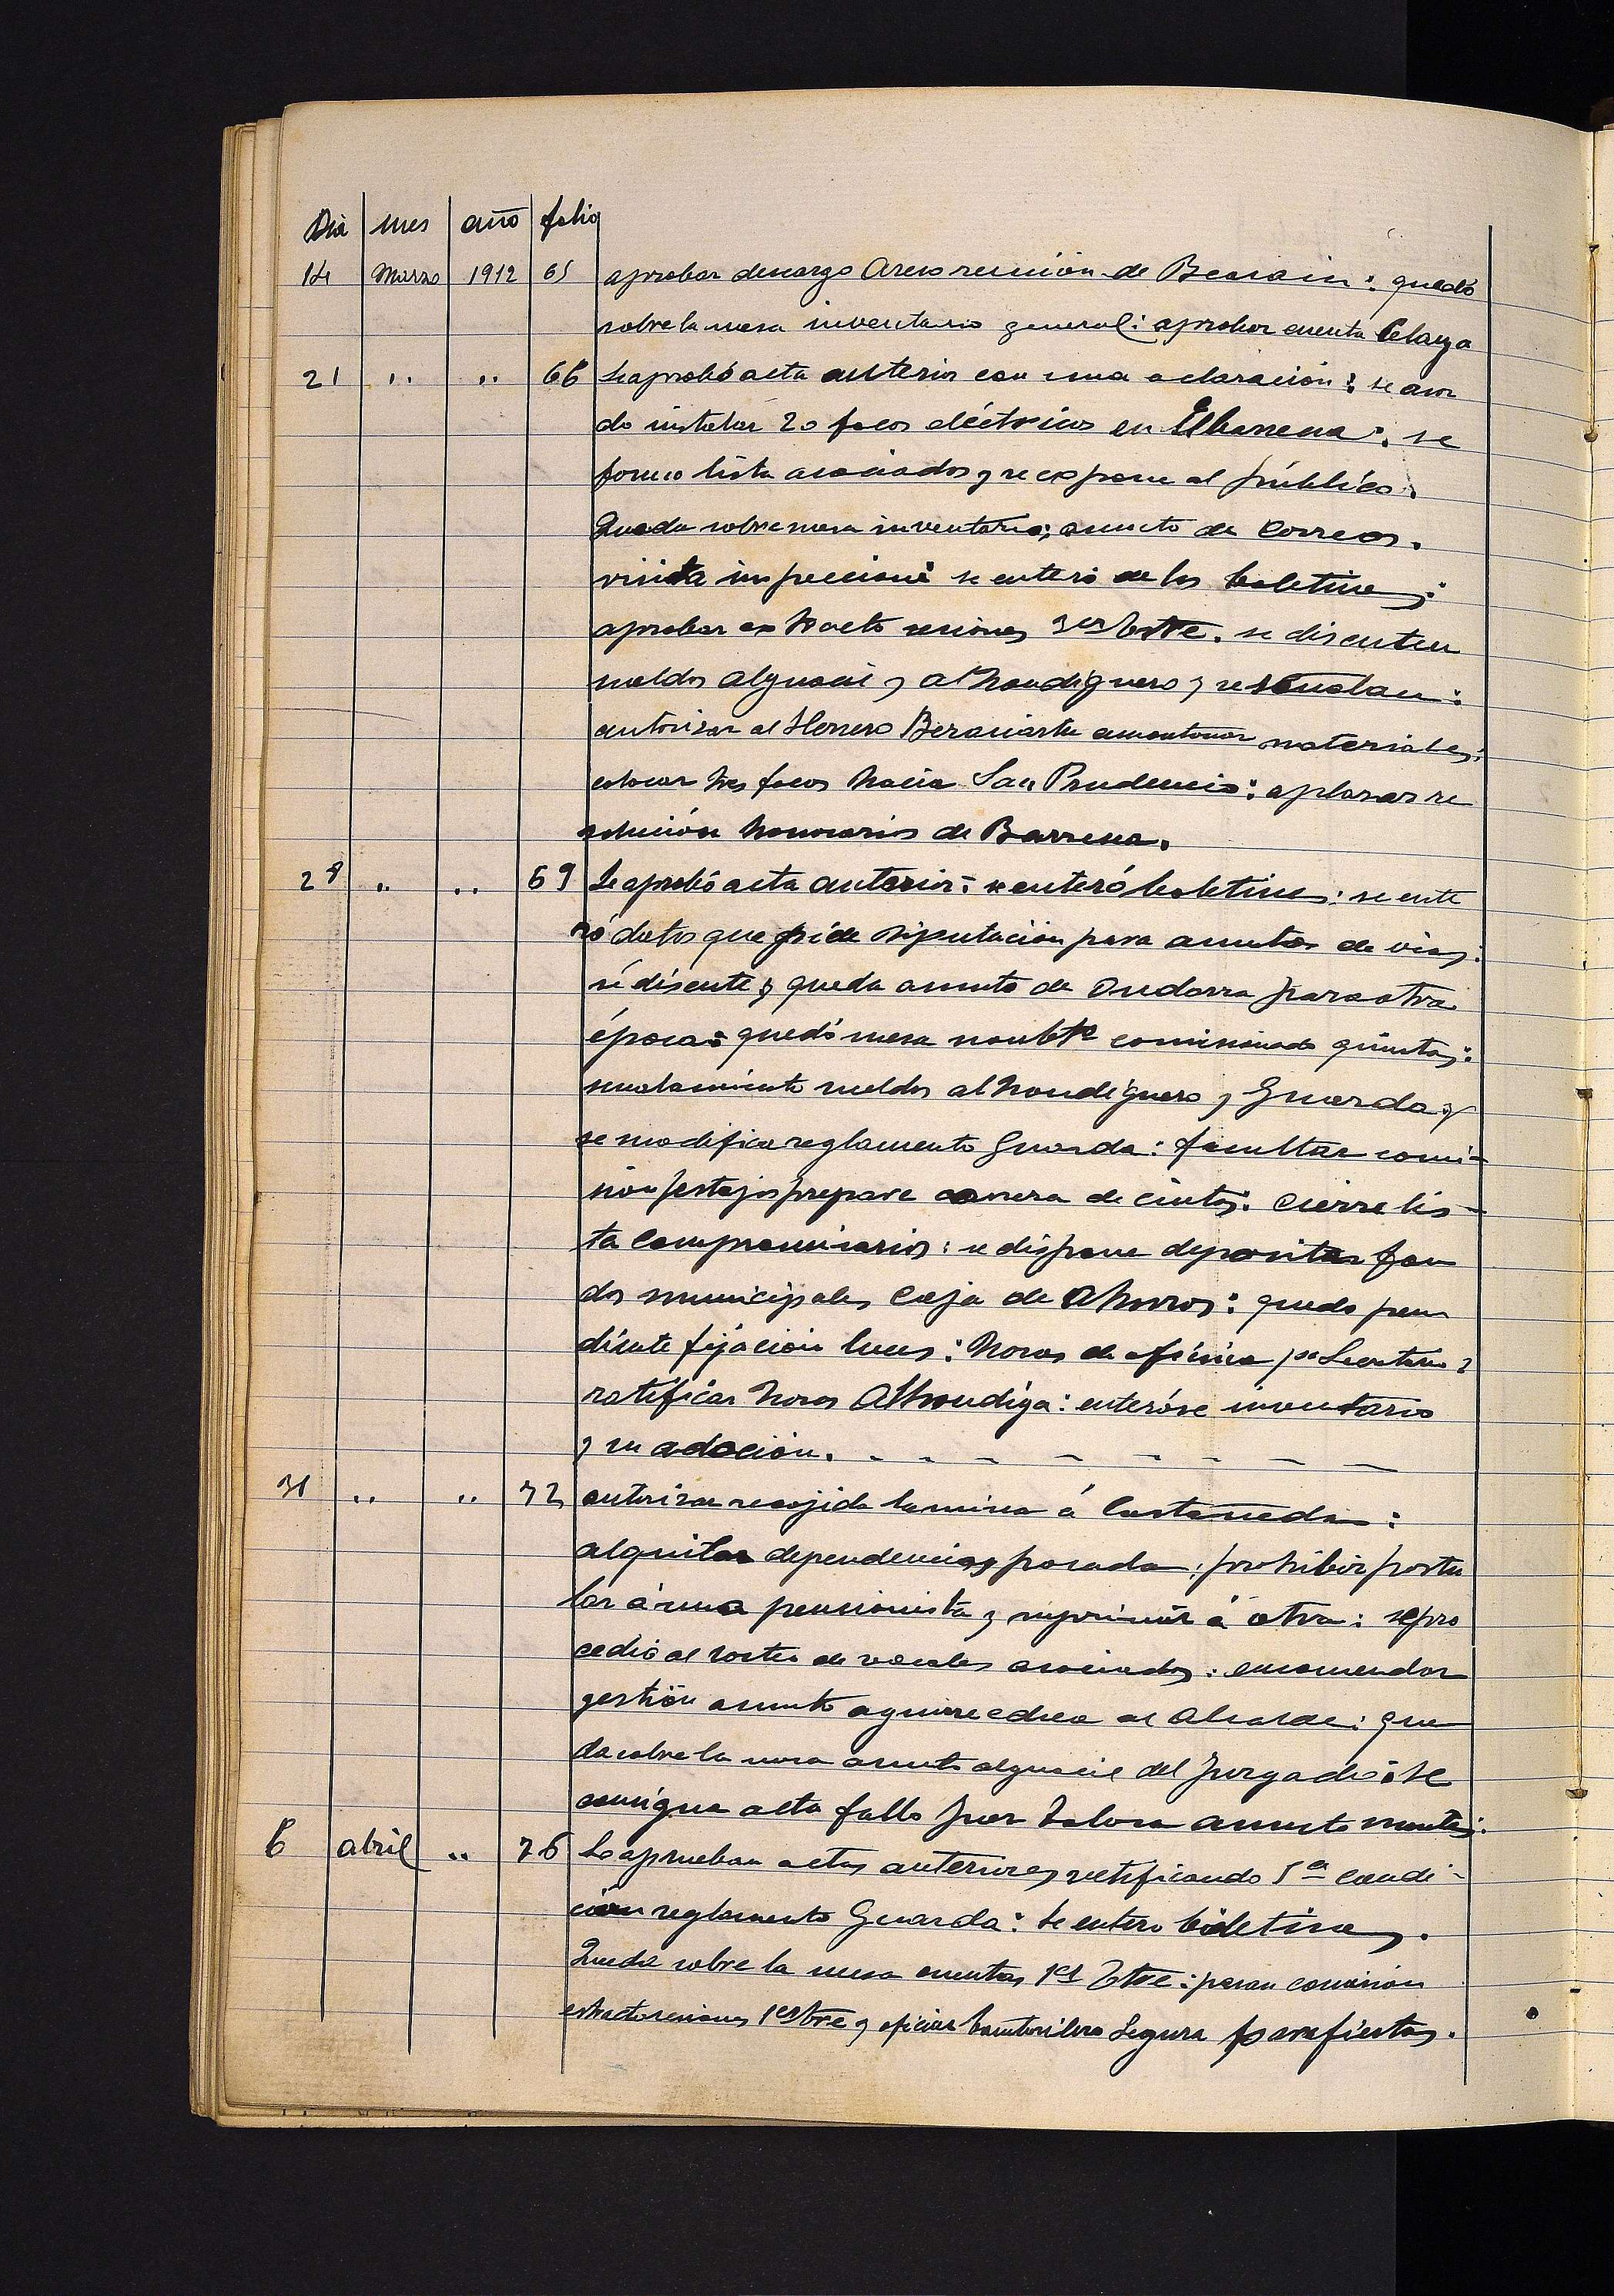 Dia mes año folio
14 Marzo 1912 65 aprobar descargo Areso reunión de Beasain: quedó
sobre la mesa inventario general: aprobar cuenta Celaya
21 " " 66 Se aprobó acta anterior con una aclaración: se acor
do instalar 20 focos eléctricos en Elbarrena: se
formo lista asociados y se expone al público:
Queda sobre mesa inventario; asunto de Correos.
visita inspeccioné se enteró de los boletines:
aprobar extracto sesiones 3er bstre. se discuten
sueldos alguacil y alhondiguero y se señalan:
autorizar al Herrero Beraciartu amontonar materiales:
colocar tres focos hacia San Prudencio: aplazar re
solución honorarios de Barrena.
28 " " 69 Se aprobó acta anterior: se enteró boletines: se ente
ró datos que pide Diputación para asuntos de vias:
se discute y queda asunto de Ondarra para otra
época: quedó mesa nombto comisionado quintas:
señalamiento sueldos alhondiguero y Guarda y
se modifica reglamento Guarda: facultar comi-
sion festejos prepare carrera de cintas: cierre lis-
ta compromisarios: se dispone depositar fon
dos municipales Caja de Ahorros: queda pen
diente fijación luces: horas de oficina pa Secretario:
ratificar horas Alhondiga: enteróse inventario
y su adoción. - - - - - - - -
31 " " 72 autorizar recojida lamina á Castañeda:
alquilar dependencias posada: prohibir postu
lar á una pensionista y suprimir á otra: se pro
cedió al sorteo de vocales asociados: encomendar
gestión asunto aguirre edrea al Alcalde: que
da sobre la mesa asunto alguacil del Juzgado: se
consigna acta fallo Juez Tolosa asunto montes:
6 abril " 76 Se aprueban actas anteriores rectificando 5ª condi-
ción reglamento Guarda: Se entero boletines.
Queda sobre la mesa cuentas 1er Tstre: pasan comision
estracto sesiones 1er stre y oficiar tamborilero Segura para fiestas.